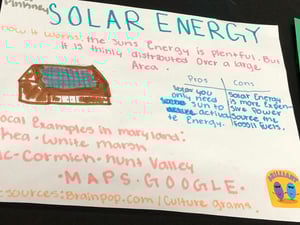 Pinkney
SOLAR ENERGY
how it works: the suns Energy is plentful. But
It is thinly distributed over a large
Area.
Pros Cons
Solar you
only need
sun to
activa
te Energy.
Solar Energy
is more Expen-
sive Power
Source the
fossil fuels.
ocal Examples in maryland:
hea - White marsh
c-Cormich - Hunt Valley
- MAPS. GOOGLE -
esources: Brainpop.com / Culture grams
BRILLIANT